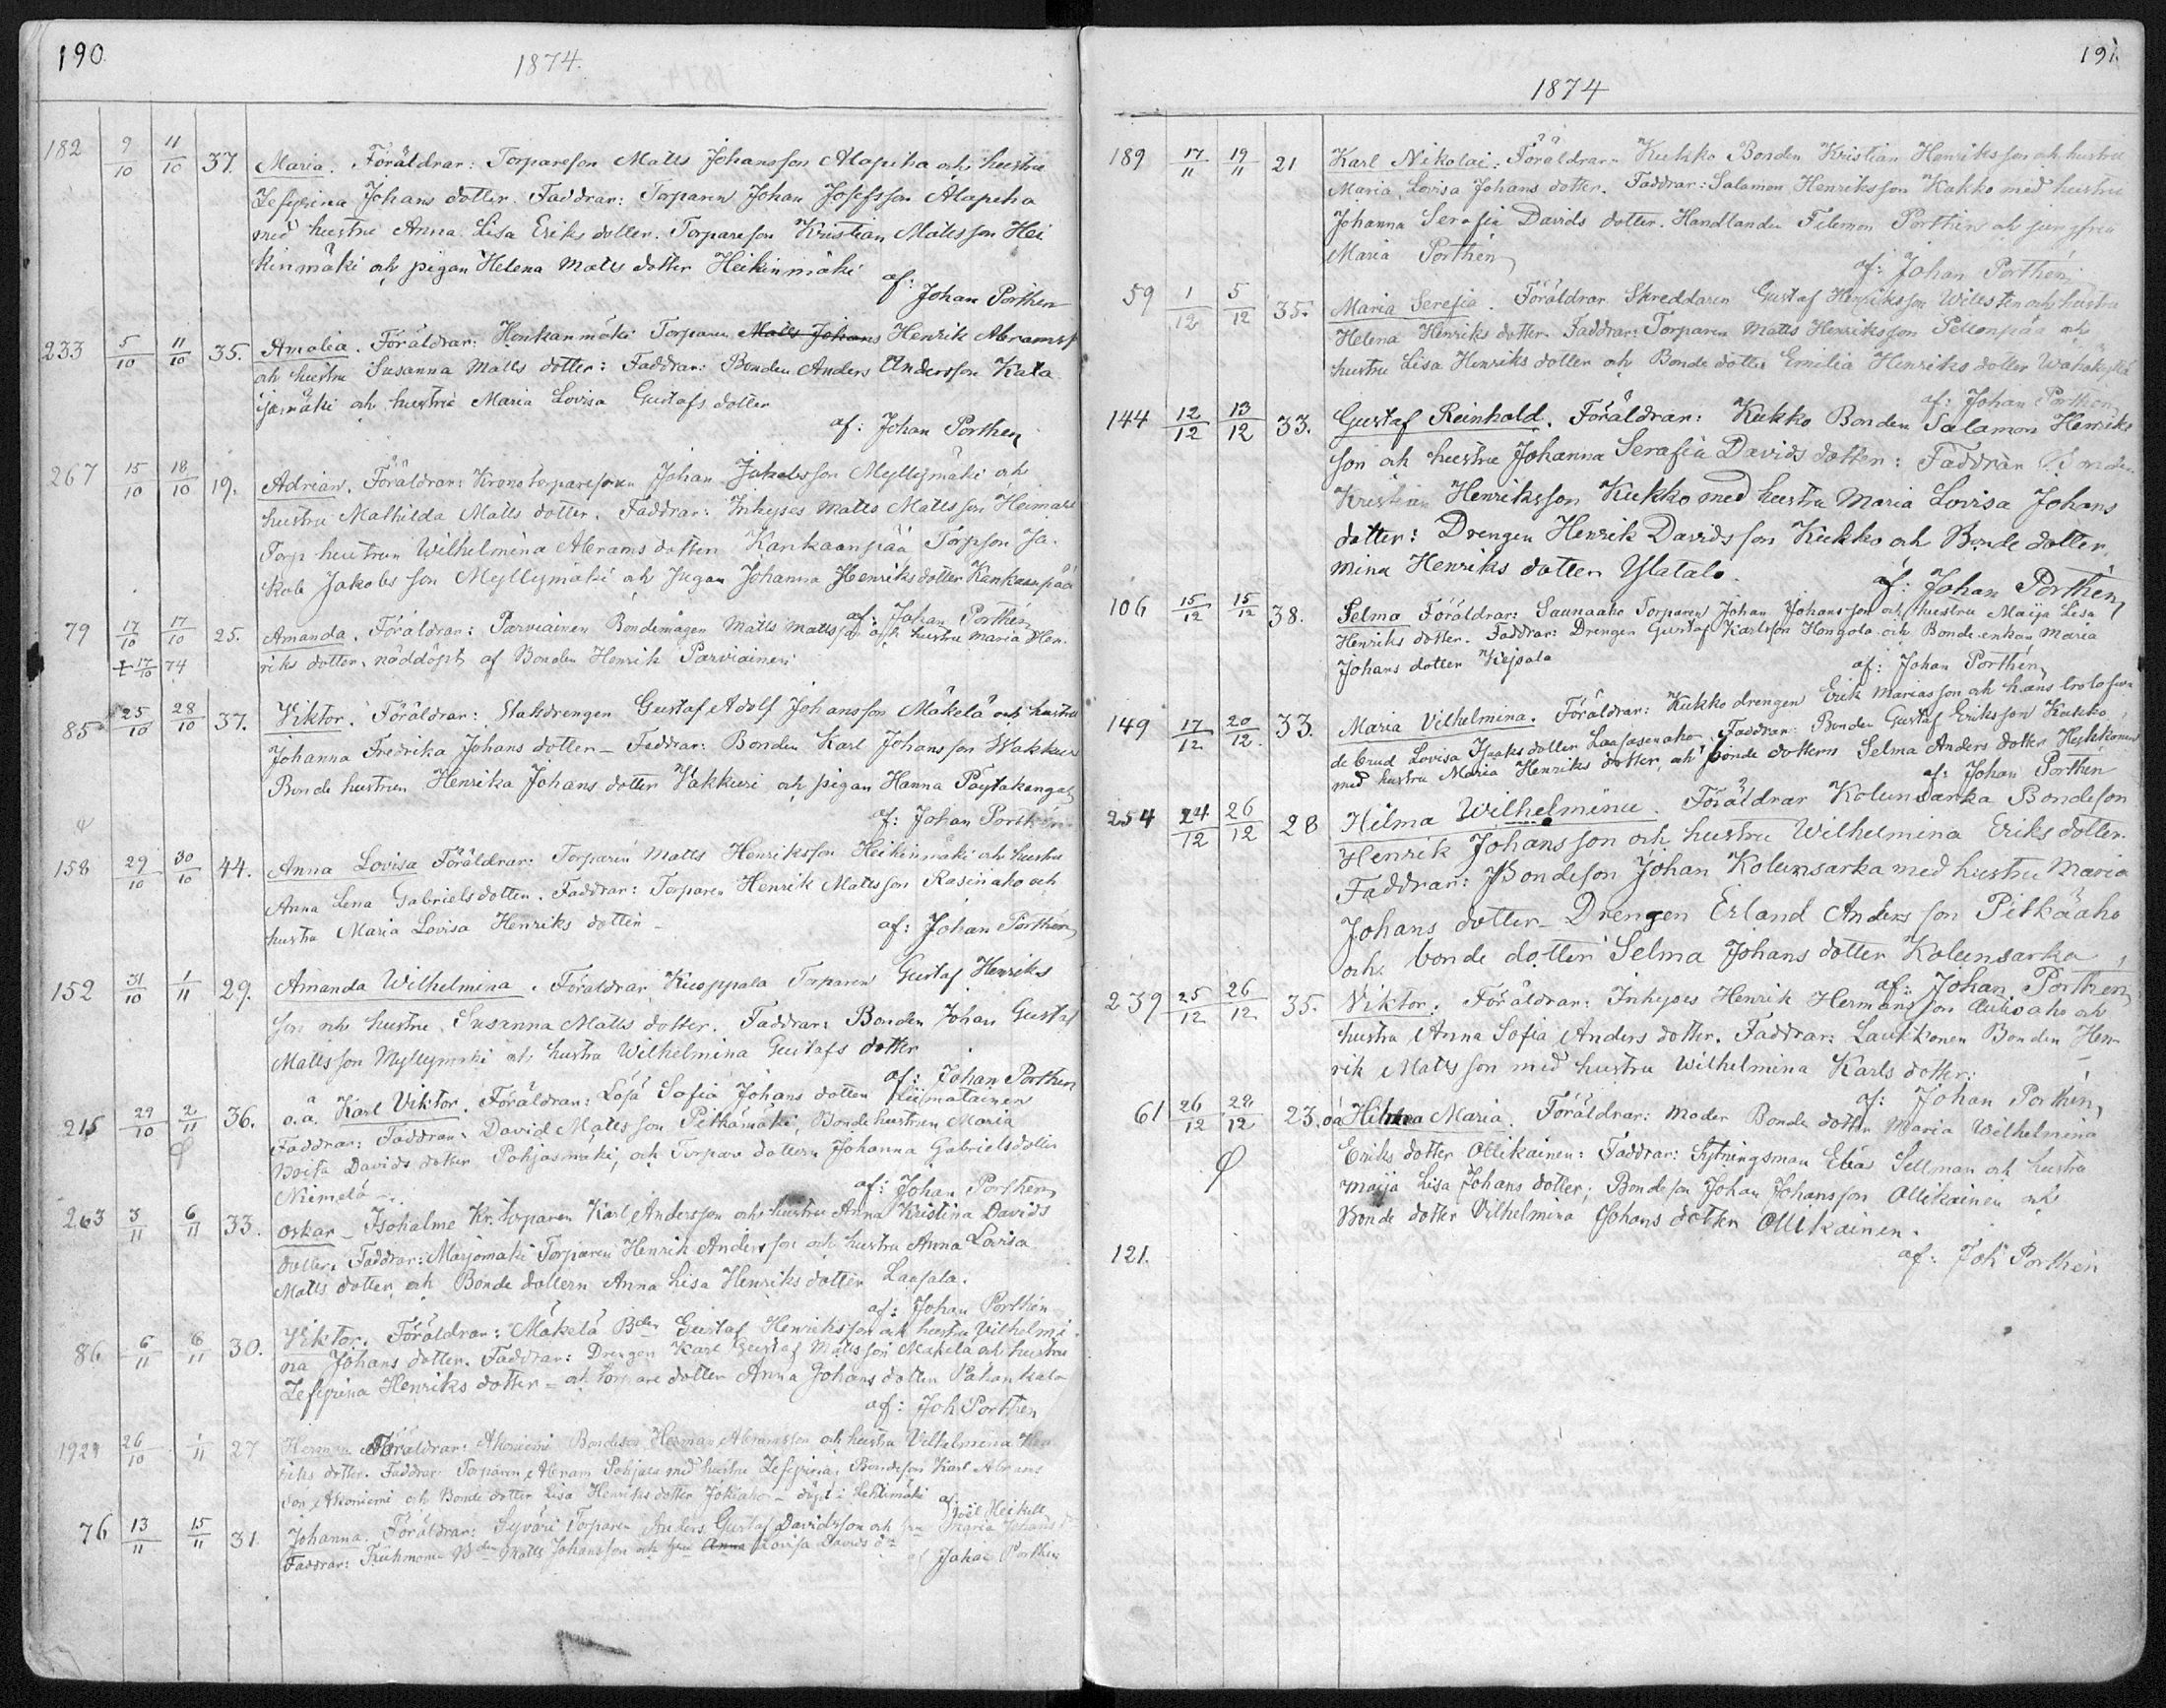 190.
1874.
182 9/10 11/10 37. Maria. Föräldrar: Torpareson Matts Johansson Alapiha och hustru
Zefyrina Johans dotter. Faddrar: Torparen Johan Josefsson Alapiha
med hustru Anna Lisa Eriks dotter. Torpareson Kristian Mattsson Hei
kinmäki och pigan Helena Matts dotter Heikinmäki
af: Johan Porthen
233 5/10 11/10 35. Amalia. Föräldrar: Honkanmäki Torparen Matts Johans Henrik Abramss
och hustru Susanna Matts dotter: Faddrar: Bonden Anders Andersson Kata
jamäki och hustru Maria Lovisa Gustafs dotter
af: Johan Porthen
267 15/10 18/10 19. Adrian. Föräldrar: Kronotorparesonen Johan Jakobsson Myllymäki och
hustru Mathilda Matts dotter. Faddrar: Inhyses Matts Mattsson
Torp hustrun Wilhelmina Abrams dotter Kankaanpää Torpson Ja-
kob Jakobs son Myllymäki och pigan Johanna Henriksdotter Kankaanpää
af: Johan Porthén
79 17/10 17/10 25. Amanda. Föräldrar: Parviainen Bondemågen Matts Mattsson och hustru Maria Hen-
† 17/10 74 riks dotter, nöddöpt af Bonden Henrik Parviainen
85 25/10 28/10 37. Viktor. Föräldrar: Statdrengen Gustaf Adolf Johansson Mäkelä och hustru
Johanna Fredrika Johans dotter – Faddrar: Bonden Karl Johansson Wakkuri
Bonde hustrun Henrika Johans dotter Vakkuri och pigan Hanna Pöytäkangas
af: Johan Porthén
158 29/10 30/10 44. Anna Lovisa Föräldrar: Torparen Matts Henriksson Heikinmäki och hustru
Anna Lena Gabrielsdotter. Faddrar: Torparen Henrik Mattsson Rasinaho och
hustru Maria Lovisa Henriks dotter –
af: Johan Porthén
152 31/10 1/11 29. Amanda Wilhelmina. Föräldrar Kuoppala Torparen Gustaf Henriks
son och hustru Susanna Matts dotter. Faddrar: Bonden Johan Gustaf
Mattsson Myllymäki och hustru Wilhelmina Gustafs dotter
af: Johan Porthen
215 29/10 2/11 36. o.ä. Karl Viktor. Föräldrar: Lösa Sofia Johans dotter Liimatainen
Faddrar: Faddrar: David Matts son Pitkämäki, Bondehustrun Maria
Lovisa Davids dotter Pohjasmäki, och Torpare dottern Johanna Gabrielsdotter
Niemelä –
af: Johan Porthen
263 3/11 6/11 33. Oskar – Isoholme Kr. torparen Karl Andersson och hustru Anna Kristina Davids
dotter. Faddrar: Marjomäki Torparen Henrik Andersson och hustru Anna Lovisa
Matts dotter och Bonde dottern Anna Lisa Henriks dotter Laasala.
af: Johan Porthén
86 6/11 8/11 30. Viktor. Föräldrar: Mäkelä Bden Gustaf Henriksson och hustru Vilhelmi
na Johans dotter. Faddrar: Drengen Karl Gustaf Mattsson Mäkelä och hustru
Zefyrina Henriks dotter – och torpare dotter Anna Johans dotter Pahankala
af: Joh Porthen
192 26/10 1/11 27 Herman Föräldrar: Akoniemi Bondeson Herman Abramsson och hustru Vilhelmina Hen
riks dotter. Faddrar Torparen Abram Pohjala med hustru Zefyrina, Bondeson Karl Abrams
son Akoniemi och Bonde dotter Lisa Henriks dotter Jokiaho – döpt i Lehtimäki
af: Joël Heikell
76 13/11 15/11 31 Johanna. Föräldrar: Syväri Torparen Anders Gustaf Davidsson och hru Maria Johans d
Faddrar: Kuhmonen Bden Matts Johansson och hru Anna Lovisa Davids dr
af Johan Porthen
191.
1874
189 17/11 19/11 21 Karl Nikolai. Föräldrar: Kukko Bonden Kristian Henriksson och hustru
Maria Lovisa Johans dotter. Faddrar: Salamon Henriksson Kukko med hustru
Johanna Serafia Davids dotter. Handlanden Filemon Porthén och jungfru
Maria Porthén
af: Johan Porthén
59 1/12 5/12 35. Maria Serefia. Föräldrar Skreddaren Gustaf Henriksson Willsten och hustru
Helena Henriks dotter. Faddrar: Torparen Matts Henriksson Peltonpää och
hustru Lisa Henriks dotter och Bonde dotter Emilia Henriks dotter Wähäkyllä
af: Johan Porthen
144 12/12 13/12 33. Gustaf Reinhold. Föräldrar: Kukko Bonden Salamon Henriks
son och hustru Johanna Serafia Davids dotter: Faddrar Bonden
Kristian Henriksson Kukko med hustru Maria Lovisa Johans
dotter: Drengen Henrik Davidsson Kukko och Bonde dotter,
mina Henriks dotter Ylatalo.
af: Johan Porthén
106 15/12 15/12 38. Selma Föräldrar: Saunaaho Torparen Johan Johansson och hustru Maija Lisa
Henriks dotter. Faddrar: Drengen Gustaf Karlsson Hongola och Bonde enkan Maria
Johans dotter Kejsala
af: Johan Porthén
149 17/12 20/12 33. Maria Vilhelmina. Föräldrar: Kukko drengen Erik Mariasson och hans trolofva
de brud Lovisa Isaks dotter Laasasenaho. Faddrar Bonden Gustaf Eriksson Kukko
med hustru Maria Henriks dotter, och bonde dottern Selma Anders dotter
af: Johan Porthen
254 24/12 26/12 28 Hilma Wilhelmina. Föräldrar Kolunsarka Bondeson
Henrik Johansson och hustru Wilhelmina Eriks dotter.
Faddrar: Bondeson Johan Kolunsarka med hustru Maria
Johans dotter – Drengen Erland Anders son Pitkäaho
och bonde dotter Selma Johans dotter Kolunsarka
af: Johan Porthen
239 25/12 26/12 35. Viktor. Föräldrar: Inhyses Henrik Hermansson Autioaho och
hustru Anna Sofia Anders dotter. Faddrar: Laukkonen Bonden Hen-
rik Matts son med hustru Wilhelmina Karls dotter:
af: Johan Porthén
61 26/12 28/12 23. oä Hilma Maria. Föräldrar: moder Bonde dotter Maria Wilhelmina
Eriks dotter Ollikainen: Faddrar: Fjtningsman Elias Sellman och hustru
Maija Lisa Johans dotter; Bondeson Johan Johansson Ollikainen och
Bonde dotter Vilhelmina Johans dotter Ollikainen.
af: Joh Porthén
121.